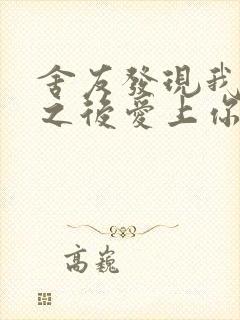 舍友發現我
之後愛上你
高巍